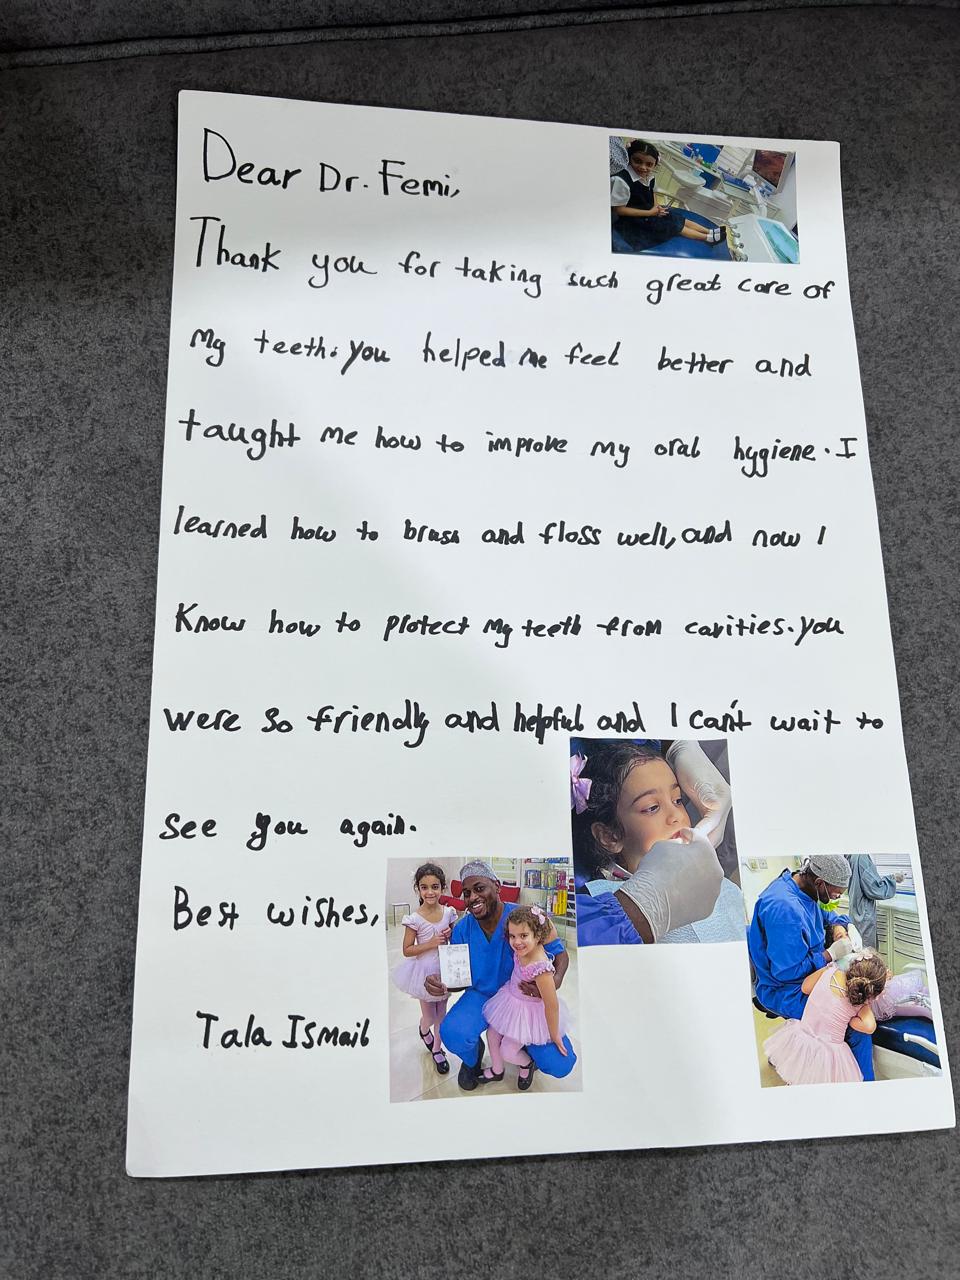 Dear Dr. Femi,
Thank you for taking such great care of
My teeth. you helped me feel better and
taught me how to improve my oral hygiene. I
learned how to brush and floss well, and now I
Know how to protect my teeth from cavities. you
were so friendly and helpful and I can't wait to
see you again.
Best wishes,
Tala Ismail